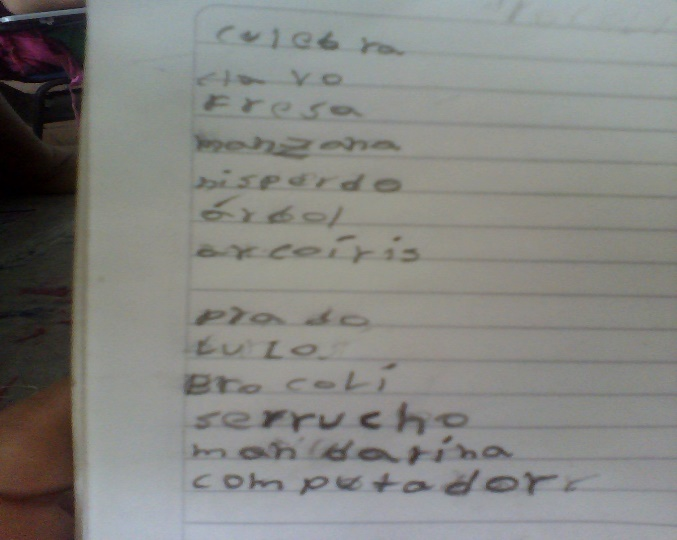 culebra
clavo
Fresa
manzana
nisperdo
árbol
arcoíris
prado
Brocolí
serrucho
mandarina
computadorr